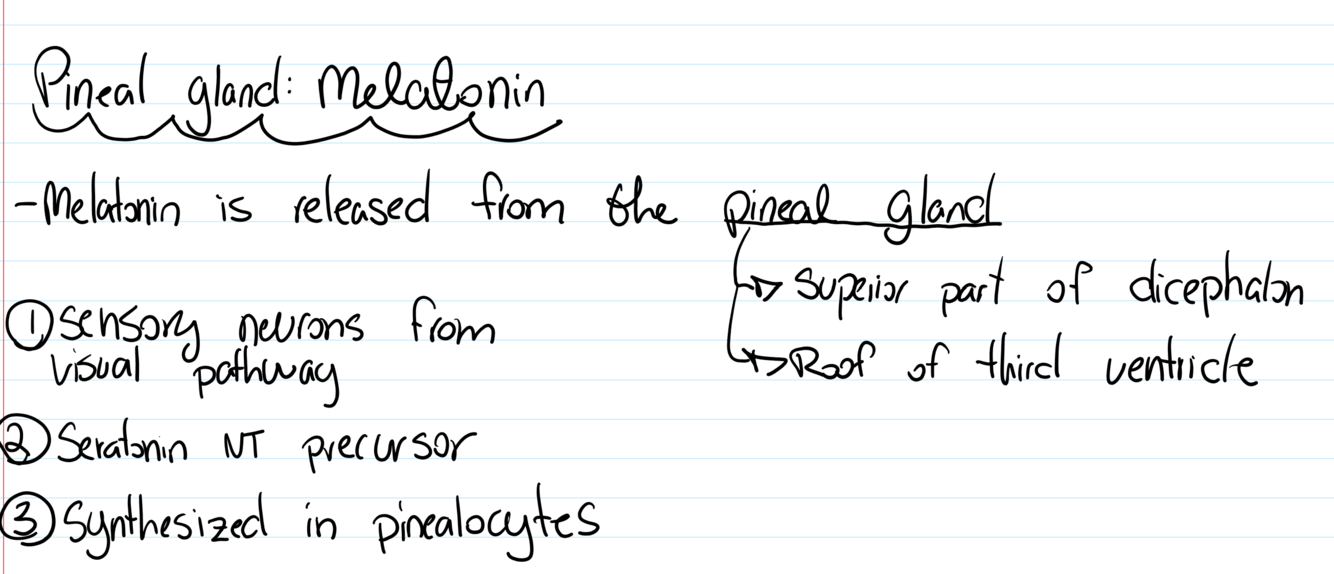 Pineal gland: Melatonin
-Melatonin is released from the pineal gland
Superior part of dicephalon
Roof of third ventricle
① Sensory neurons from
visual pathway
② Seratonin NT precursor
③ Synthesized in pinealocytes